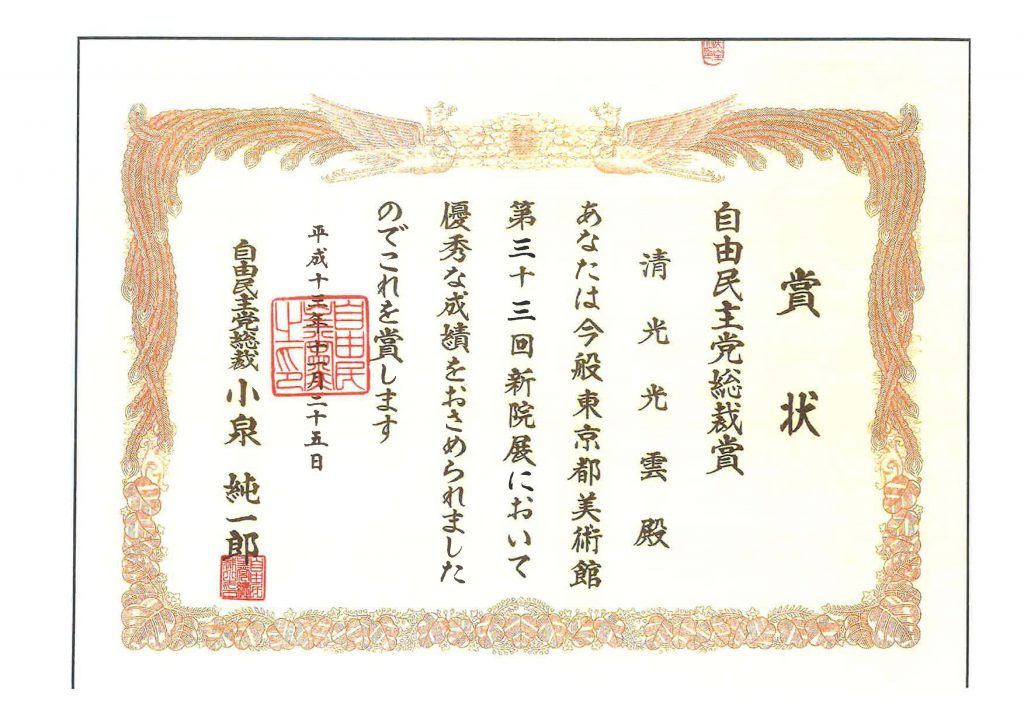 賞状
自由民主党総裁賞
清光光雲殿
あなたは今般東京都美術館
第三十三回新院展において
優秀な成績をおさめられました
のでこれを賞します
平成十三年十一月二十五日
自由民主党総裁 小泉 純一郎